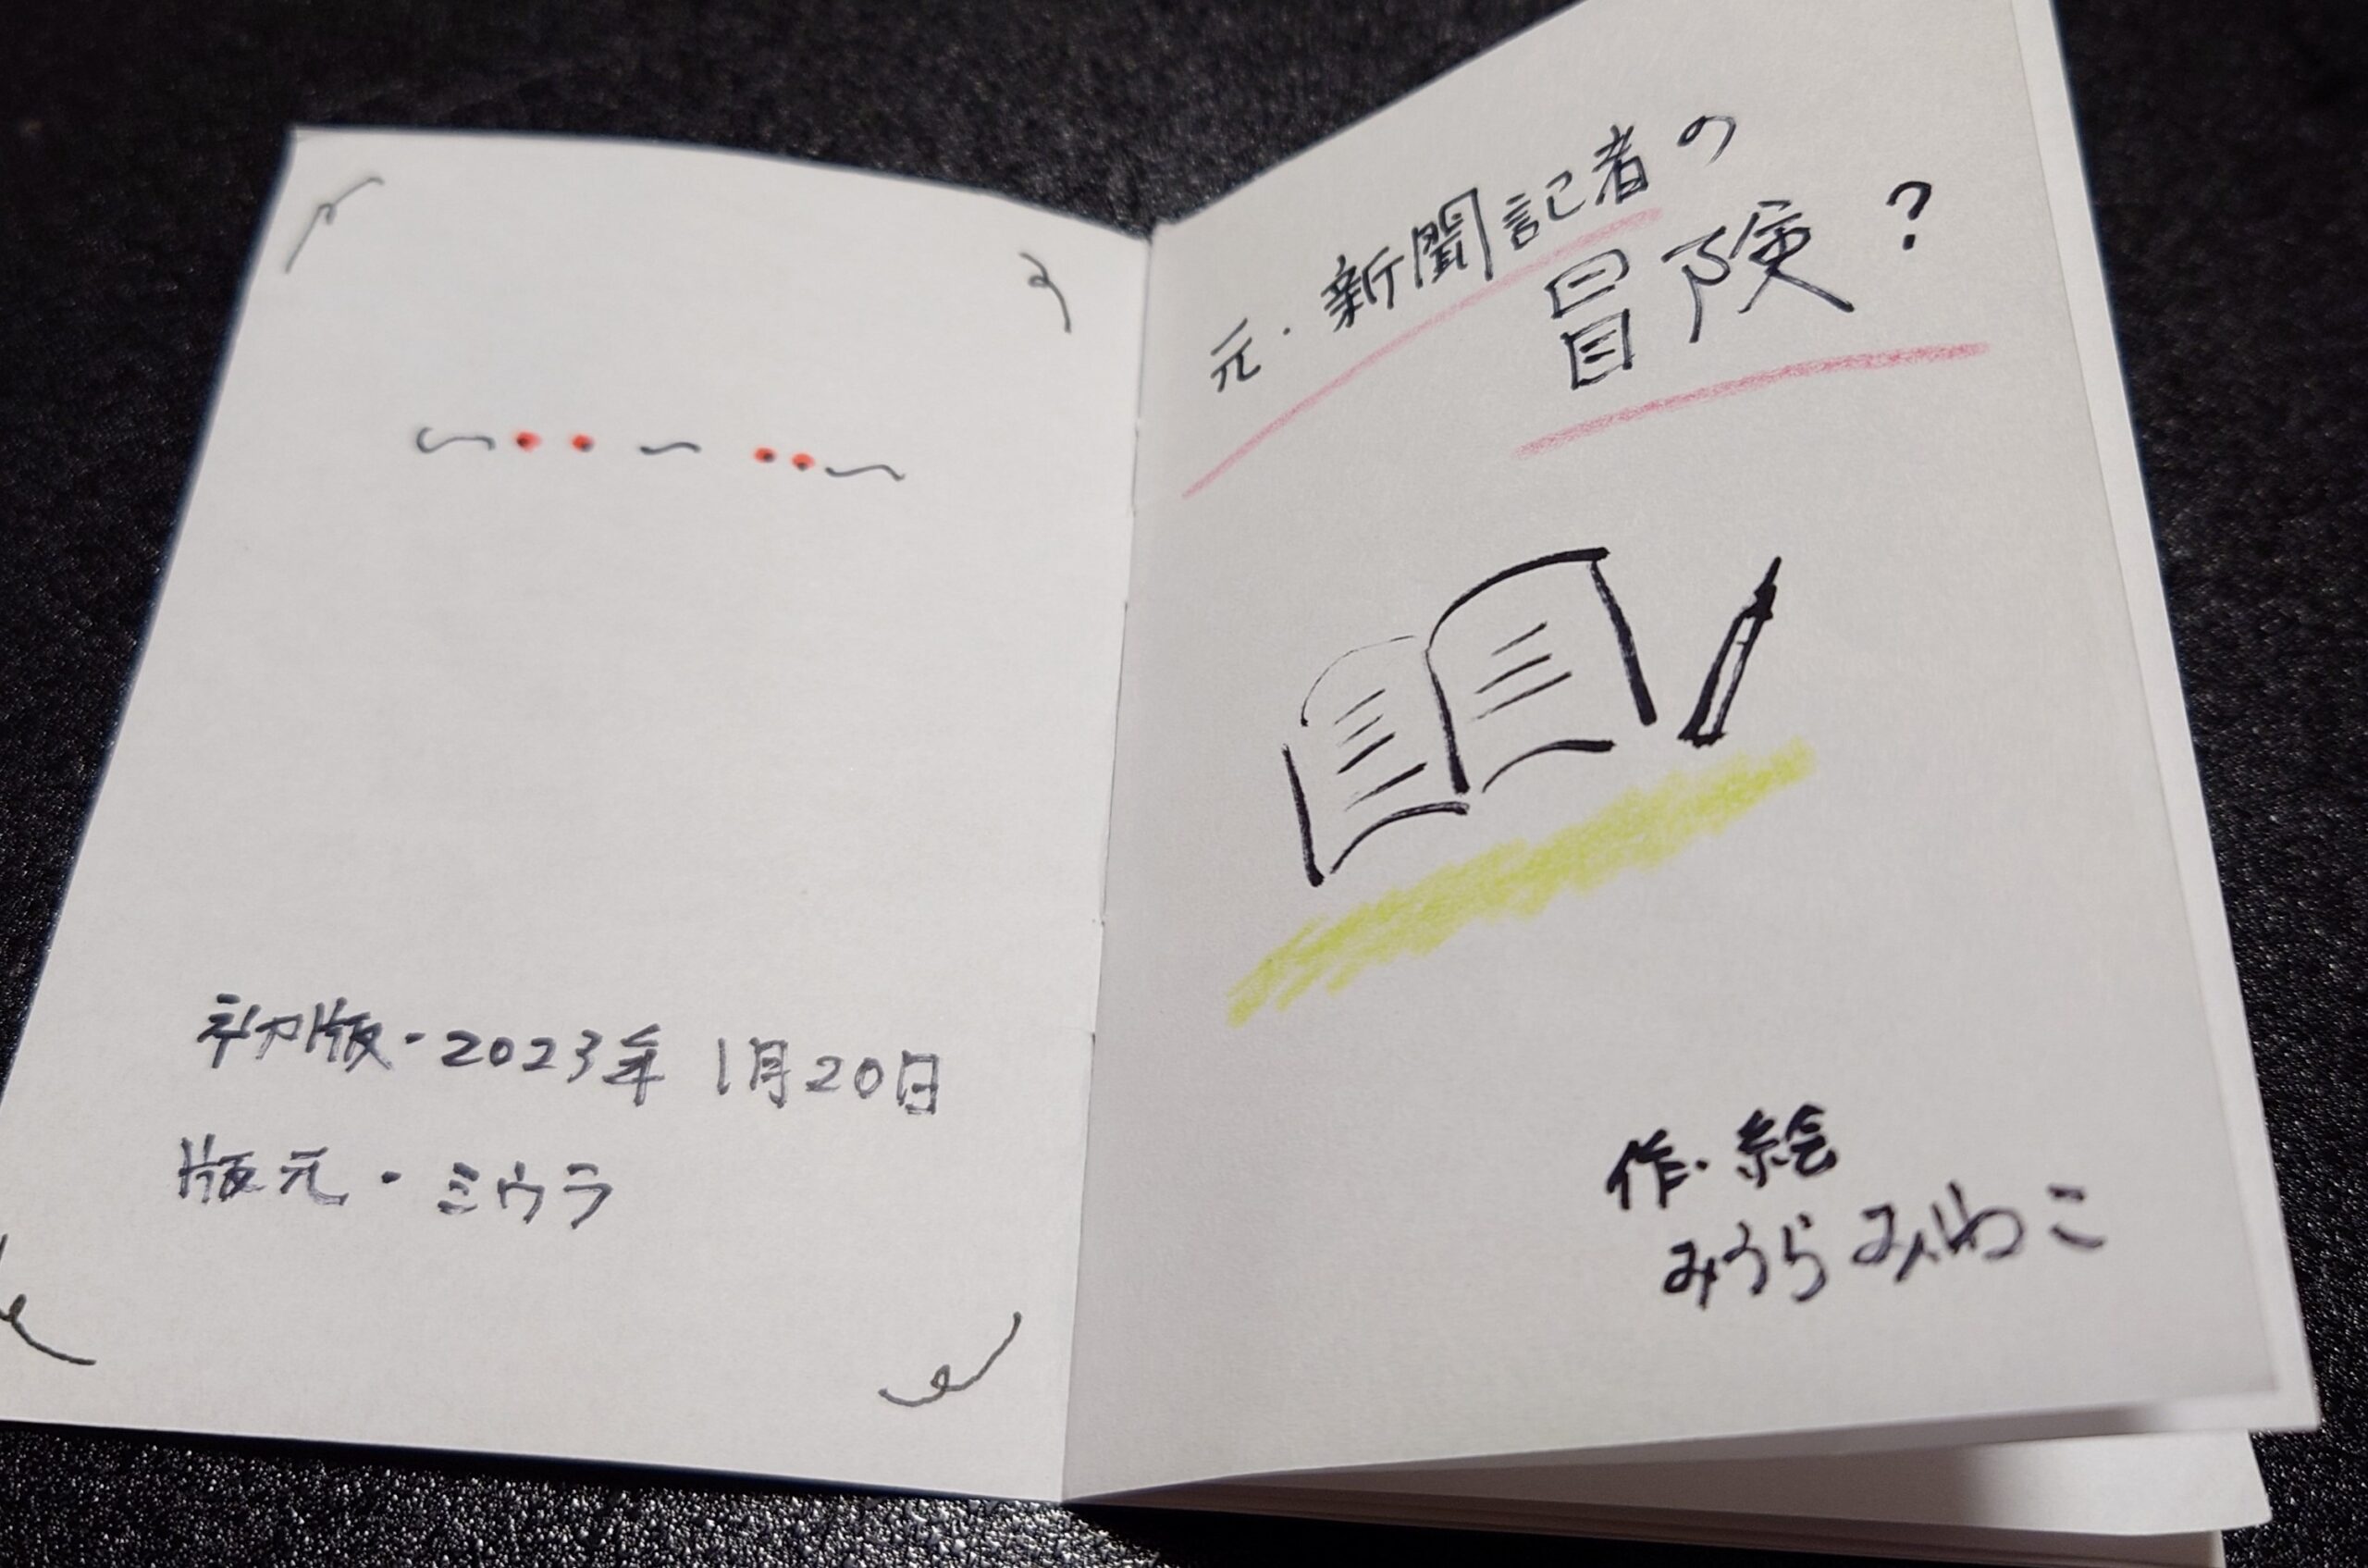 初版・2023年 1月20日
版元・ミウラ
元・新聞記者の
冒険?
作・絵
みうらみねこ